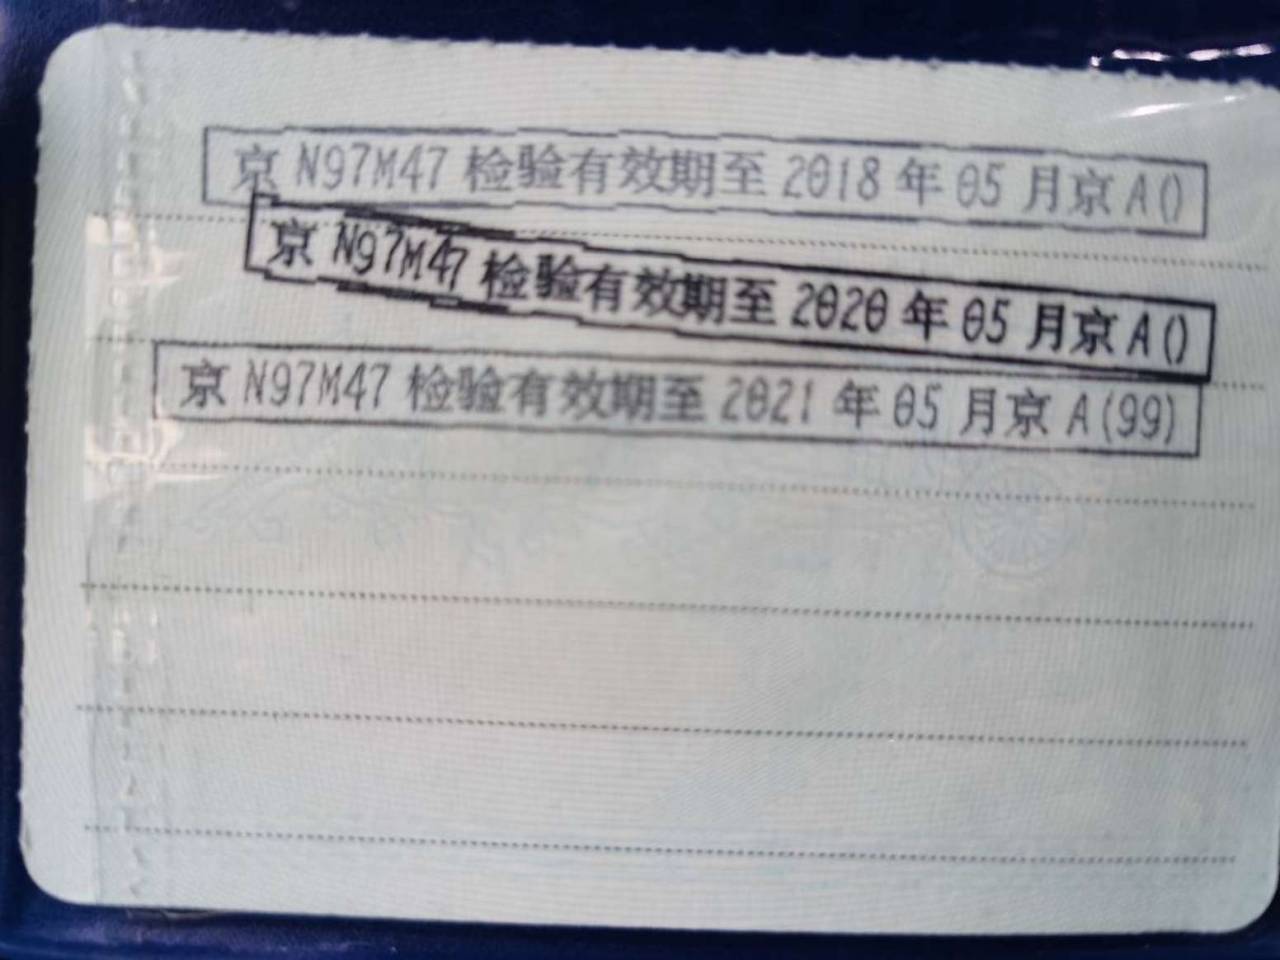 京 N97M47 检验有效期至 2018 年 05 月京 A()
京 N97M47 检验有效期至 2020 年 05 月京 A()
京 N97M47 检验有效期至 2021 年 05 月京 A(99)